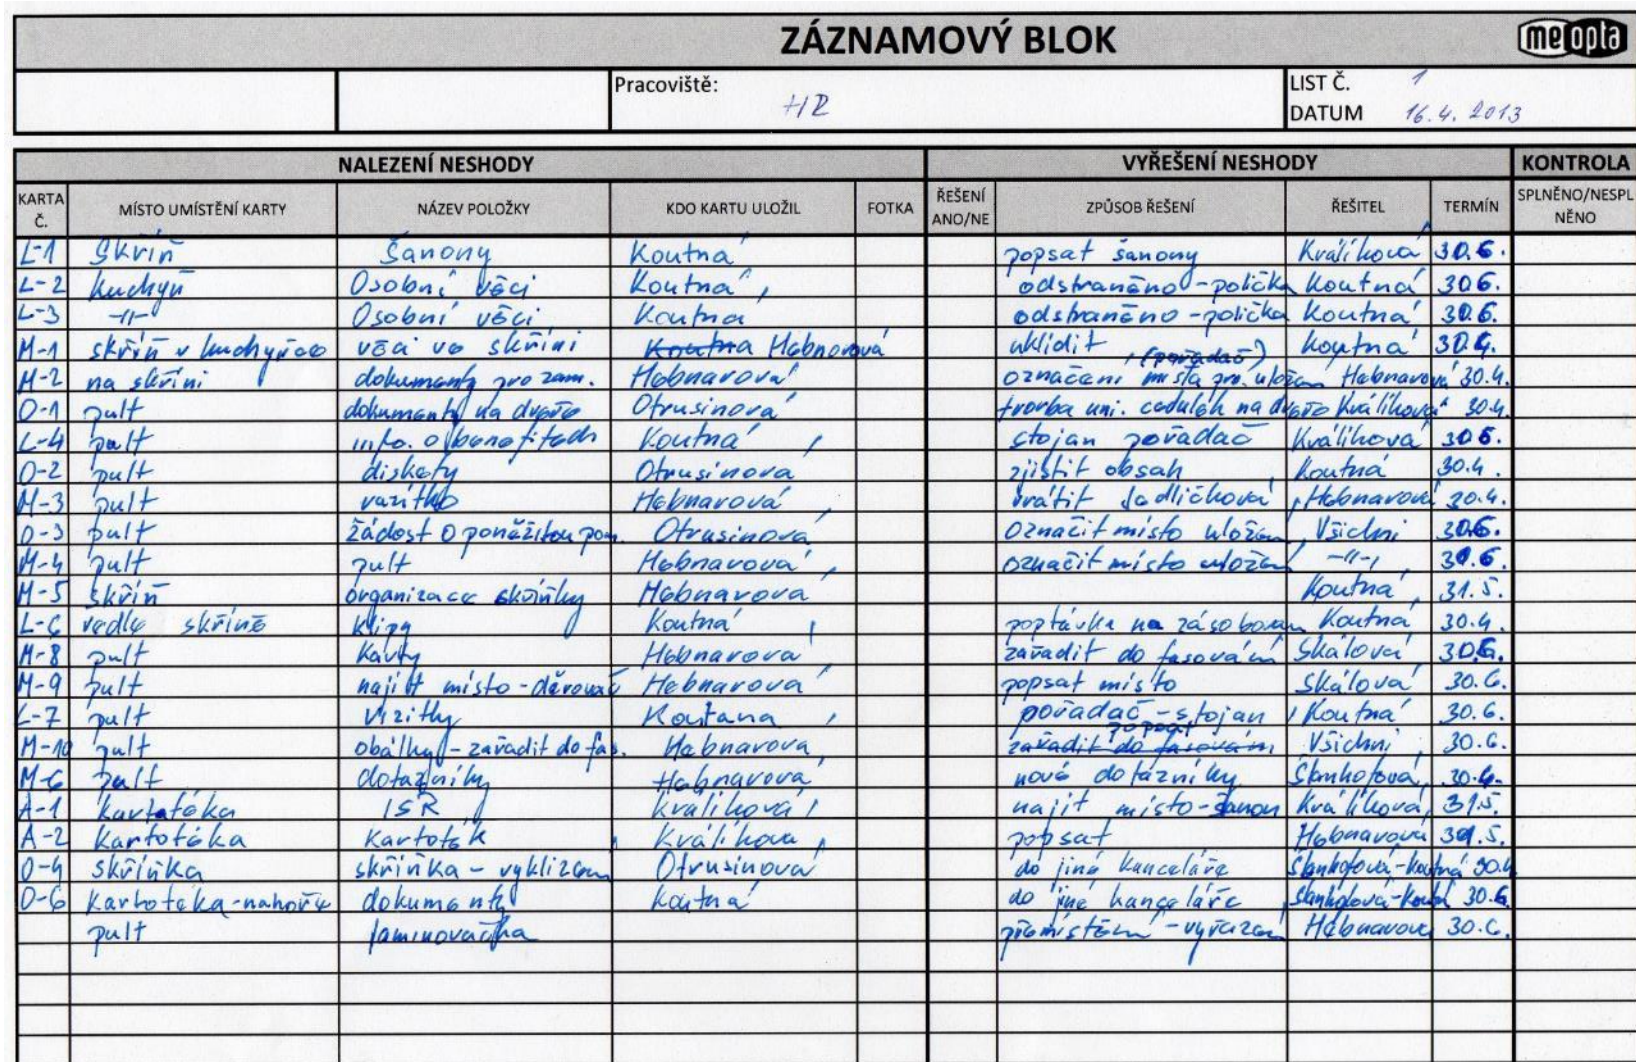 ZÁZNAMOVÝ BLOK meopta
Pracoviště: HR LIST Č. 1
DATUM 16.4. 2013
NALEZENÍ NESHODY VYŘEŠENÍ NESHODY KONTROLA
KARTA Č. MÍSTO UMÍSTĚNÍ KARTY NÁZEV POLOŽKY KDO KARTU ULOŽIL FOTKA ŘEŠENÍ ANO/NE ZPŮSOB ŘEŠENÍ ŘEŠITEL TERMÍN SPLNĚNO/NESPLNĚNO
L-1 Skříň Šanony Koutná popsat šanony Králíková 30.6.
L-2 kuchyň Osobní věci Koutná odstraněno - polička Koutná 30.6.
L-3 -//- Osobní věci Koutná odstraněno - polička Koutná 30.6.
M-1 skříň v věci ve skříni Koutna Hebnarová uklidit Koutná
M-2 na skříni dokumenty pro zam. Hebnarová označení místa pro (pořadač) Hebnarová 30.4.
O-1 pult dokumenty na dveře Otrusinová tvorba uni. cedulek na dveře Králíková 30.4.
L-4 pult info. o benefitech Koutná stojan pořadač Králíková 30.6.
O-2 pult diskety Otrusinová zjistit obsah Koutná 30.4.
M-3 pult Hebnarová vrátit Hebnarová 30.4.
O-3 pult žádost o peněžitou pom. Otrusinová označit místo uložení Všichni 30.6.
M-4 pult pult Hebnarová označit místo uložení -//- 30.6.
M-5 skříň organizace skříňky Hebnarova Koutná 31.5.
L-6 vedle skříně klipy Koutná poptávka na Koutná 30.4.
M-8 pult Hebnarova zařadit do fasování Skálová 30.6.
M-9 pult najít místo - děrovač Hebnarová popsat místo Skálová 30.6.
L-7 pult vizitky Koutana pořadač - stojan Koutná 30.6.
M-10 pult obálky - zařadit do fas. Hebnarova zařadit do fasování Všichni 30.6.
M-6 pult dotazníky Hebnarová nové dotazníky 30.4.
A-1 kartotéka ISR Králíková najít místo - šanon Králíková 31.5.
A-2 Kartotéka Kartoték Králíkova popsat Hebnarová
O-4 skříňka skříňka - vyklizení Otrusinová do jiné kanceláře
O-6 Kartotéka - nahoře dokumenty Koutná do jiné kanceláře 30.6.
pult laminovačka přemístění - vyřazení Hebnarova 30.6.